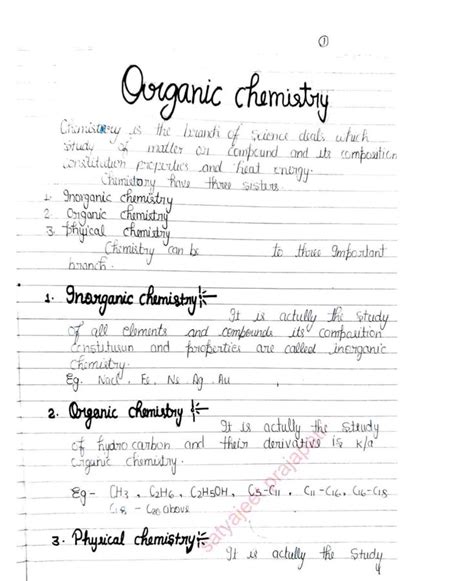 1
Ourganic chemistry
Chemistory is the branch of science deals which
study of matter or compound and its composition
constitution properties and heat energy.
Chemistory have three sisters.
1. Inorganic chemistry
2. Organic chemistry
3. Phyical chemistry
Chemistry can be to three Important
branch.
1. Inorganic chemistry :-
It is actully the study
of all elements and compounds its composition
constitusun and properties are called inorganic
chemistry.
Eg. Nacl, Fe, Ne Ag, Au
2. Organic chemistry :-
It is actully the study
of hydro carbon and their derivative is k/a
organic chemistry.
Eg - CH3, C2H6, C2H5OH, C5-C11, C11-C16, C16-C18
C18 - C20 above
satyajeet prajapati
3. Physical chemistry :-
It is actully the study